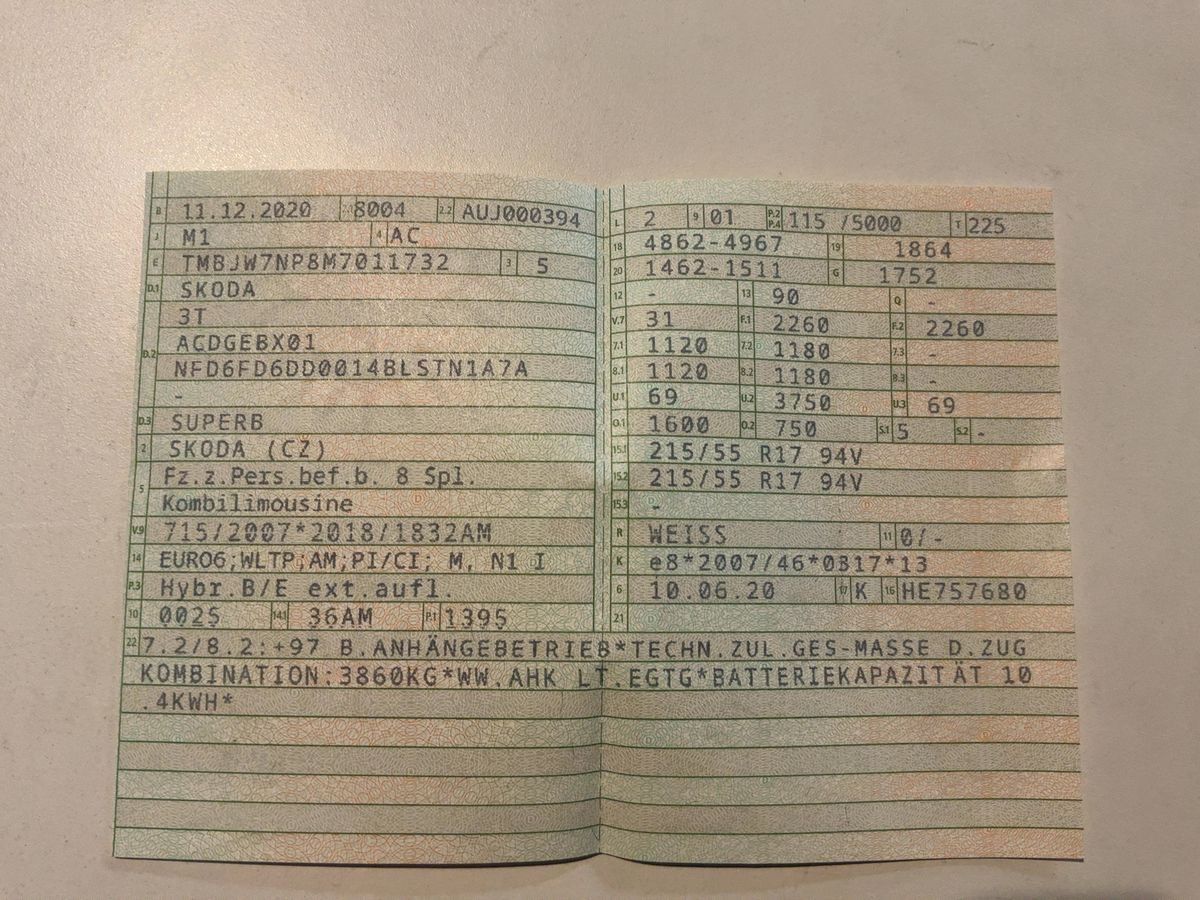 B 11.12.2020 2.1 8004 2.2 AUJ000394
J M1 4 AC
E TMBJW7NP8M7011732 3 5
D.1 SKODA
3T
D.2 ACDGEBX01
NFD6FD6DD0014BLSTN1A7A
-
D.3 SUPERB
2 SKODA (CZ)
5 Fz.z.Pers.bef.b. 8 Spl.
Kombilimousine
V.9 715/2007*2018/1832AM
14 EURO6;WLTP;AM;PI/CI; M, N1 I
P.3 Hybr.B/E ext.aufl.
10 0025 14.1 36AM P.1 1395
L 2 9 01 P.2 P.4 115 /5000 T 225
18 4862-4967 19 1864
20 1462-1511 G 1752
12 - 13 90 Q -
V.7 31 F.1 2260 F.2 2260
7.1 1120 7.2 1180 7.3 -
8.1 1120 8.2 1180 8.3 -
U.1 69 U.2 3750 U.3 69
O.1 1600 O.2 750 S.1 5 S.2 -
15.1 215/55 R17 94V
15.2 215/55 R17 94V
15.3 -
R WEISS 11 0/-
K e8*2007/46*0317*13
6 10.06.20 17 K 16 HE757680
21
22 7.2/8.2:+97 B.ANHÄNGEBETRIEB*TECHN.ZUL.GES-MASSE D.ZUG
KOMBINATION:3860KG*WW.AHK LT.EGTG*BATTERIEKAPAZITÄT 10
.4KWH*